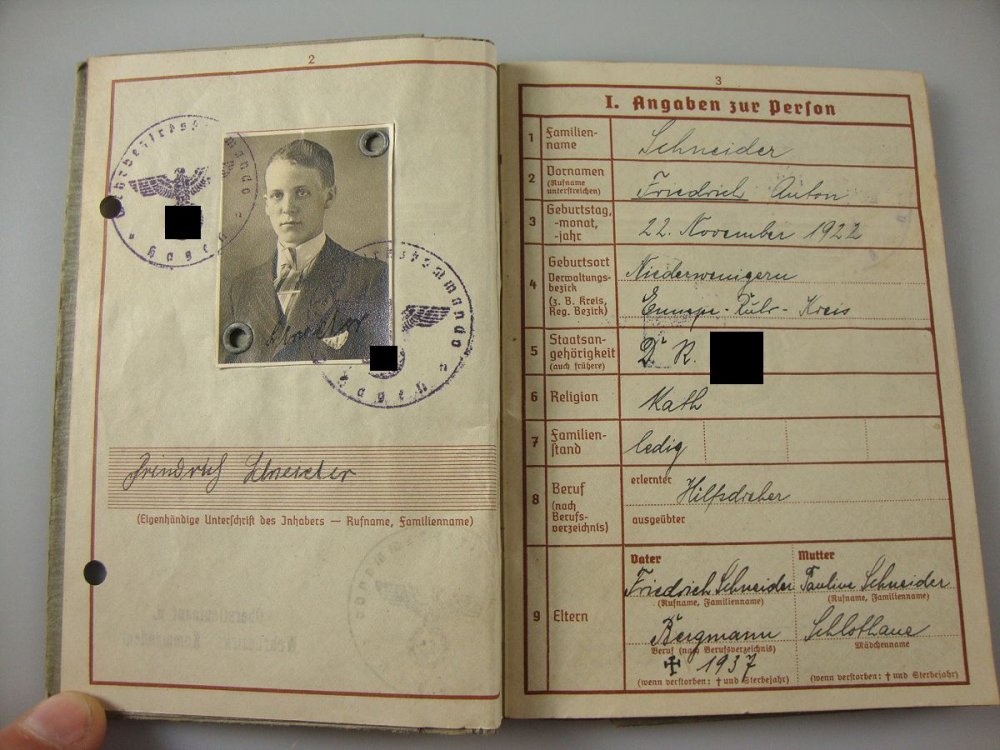 2
Wehrbezirkskommando
Hagen
Wehrbezirkskommando
Hagen
Schneider
Friedrich Schneider
(Eigenhändige Unterschrift des Inhabers — Rufname, Familienname)
3
I. Angaben zur Person
1 Familienname Schneider
2 Vornamen (Rufname unterstreichen) Friedrich Anton
3 Geburtstag, -monat, -jahr 22. November 1922
4 Geburtsort Niederwenigern
Verwaltungsbezirk (z. B. Kreis, Reg. Bezirk) Ennepe-Ruhr-Kreis
5 Staatsangehörigkeit (auch frühere) D. R.
6 Religion Kath
7 Familienstand ledig
8 Beruf (nach Berufsverzeichnis) erlernter Hilfsdreher
ausgeübter
9 Eltern
Vater Mutter
Friedrich Schneider Pauline Schneider
(Rufname, Familienname) (Rufname, Familienname)
Bergmann
Beruf (nach Berufsverzeichnis) Mädchenname
† 1937
(wenn verstorben: † und Sterbejahr) (wenn verstorben: † und Sterbejahr)